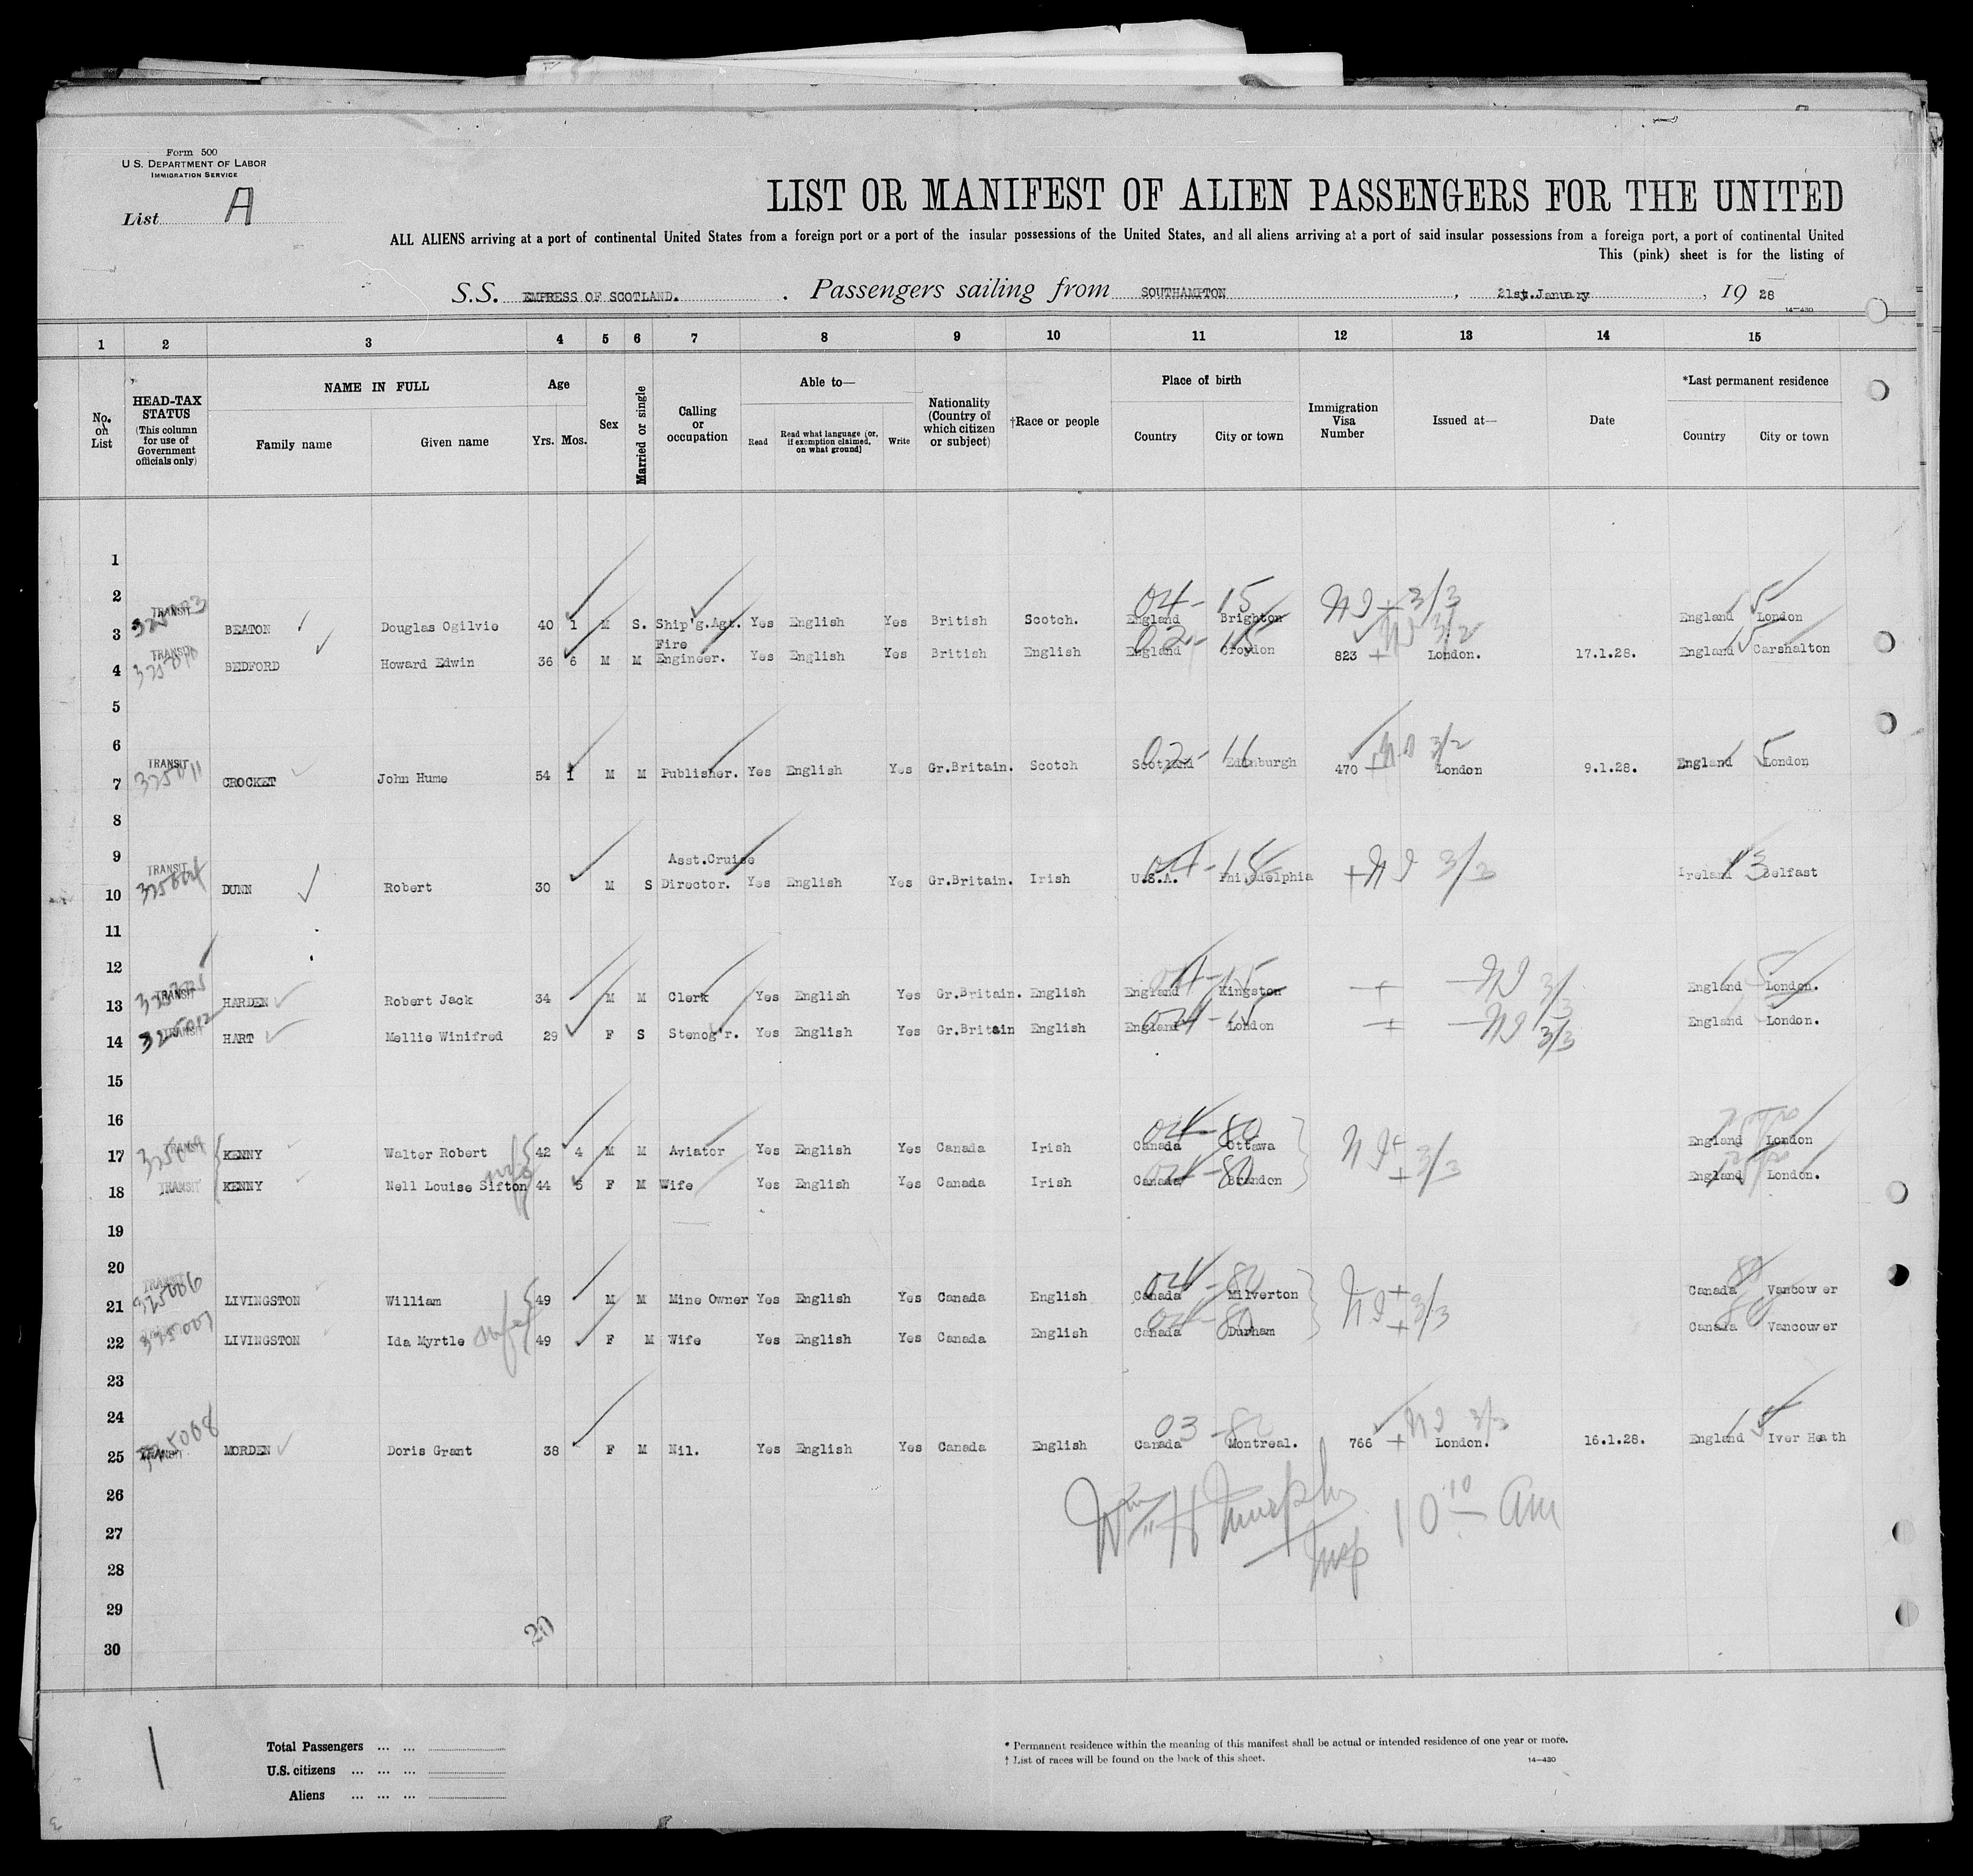 Form 500
U.S. DEPARTMENT OF LABOR
IMMIGRATION SERVICE
List A
LIST OR MANIFEST OF ALIEN PASSENGERS FOR THE UNITED
ALL ALIENS arriving at a port of continental United States from a foreign port or a port of the insular possessions of the United States, and all aliens arriving at a port of said insular possessions from a foreign port, a port of continental United
This (pink) sheet is for the listing of
S.S. EMPRESS OF SCOTLAND. Passengers sailing from SOUTHAMPTON, 21st.January, 19 28
14-430
1 2 3 4 5 6 7 8 9 10 11 12 13 14 15
No. on List
HEAD-TAX STATUS (This column for use of Government officials only)
NAME IN FULL
Family name Given name
Age
Yrs. Mos.
Sex
Married or single
Calling or occupation
Able to—
Read Read what language (or, if exemption claimed, on what ground) Write
Nationality (Country of which citizen or subject)
†Race or people
Place of birth
Country City or town
Immigration Visa Number
Issued at—
Date
*Last permanent residence
Country City or town
1
2
04-15 NI + 3/3 5
3 TRANSIT BEATON Douglas Ogilvie 40 1 M S. Ship'g.Agt. Yes English Yes British Scotch. England Brighton England London
02-15 3/2 15
4 TRANSIT BEDFORD Howard Edwin 36 6 M M Fire Engineer. Yes English Yes British English England Croydon 823 + London. 17.1.28. England Carshalton
5
6
02-11 3/2 5
7 TRANSIT 325011 CROCKET John Hume 54 1 M M Publisher. Yes English Yes Gr.Britain. Scotch Scotland Edinburgh 470 + London 9.1.28. England London
8
9
10 TRANSIT DUNN Robert 30 M S Asst.Cruise Director. Yes English Yes Gr.Britain. Irish U.S.A. Philadelphia + NI 3/3 Ireland 13 Belfast
11
12
13 TRANSIT HARDEN Robert Jack 34 M M Clerk Yes English Yes Gr.Britain. English England Kingston + NI 3/3 England London.
14 TRANSIT 325012 HART Mellie Winifred 29 F S Stenog'r. Yes English Yes Gr.Britain English England London + NI 3/3 England London.
15
16
04-80
17 TRANSIT KENNY Walter Robert 42 4 M M Aviator Yes English Yes Canada Irish Canada Ottawa NI + 3/3 England London
04-80
18 TRANSIT KENNY Nell Louise Sifton 44 5 F M Wife Yes English Yes Canada Irish Canada Brandon + England London.
19
20
04-80 80
21 TRANSIT 325006 LIVINGSTON William 49 M M Mine Owner Yes English Yes Canada English Canada Milverton NI + 3/3 Canada Vancouver
04-80 80
22 325007 LIVINGSTON Ida Myrtle wife 49 F M Wife Yes English Yes Canada English Canada Durham + Canada Vancouver
23
24
03-80 NI 3/3 15
25 TRANSIT 325008 MORDEN Doris Grant 38 F M Nil. Yes English Yes Canada English Canada Montreal. 766 + London. 16.1.28. England Iver Heath
26
Wm H Murphy Insp 10 10 am
27
28
29
20
30
Total Passengers ... ...
U.S. citizens ... ... ...
Aliens ... ... ...
* Permanent residence within the meaning of this manifest shall be actual or intended residence of one year or more.
† List of races will be found on the back of this sheet.
14-430